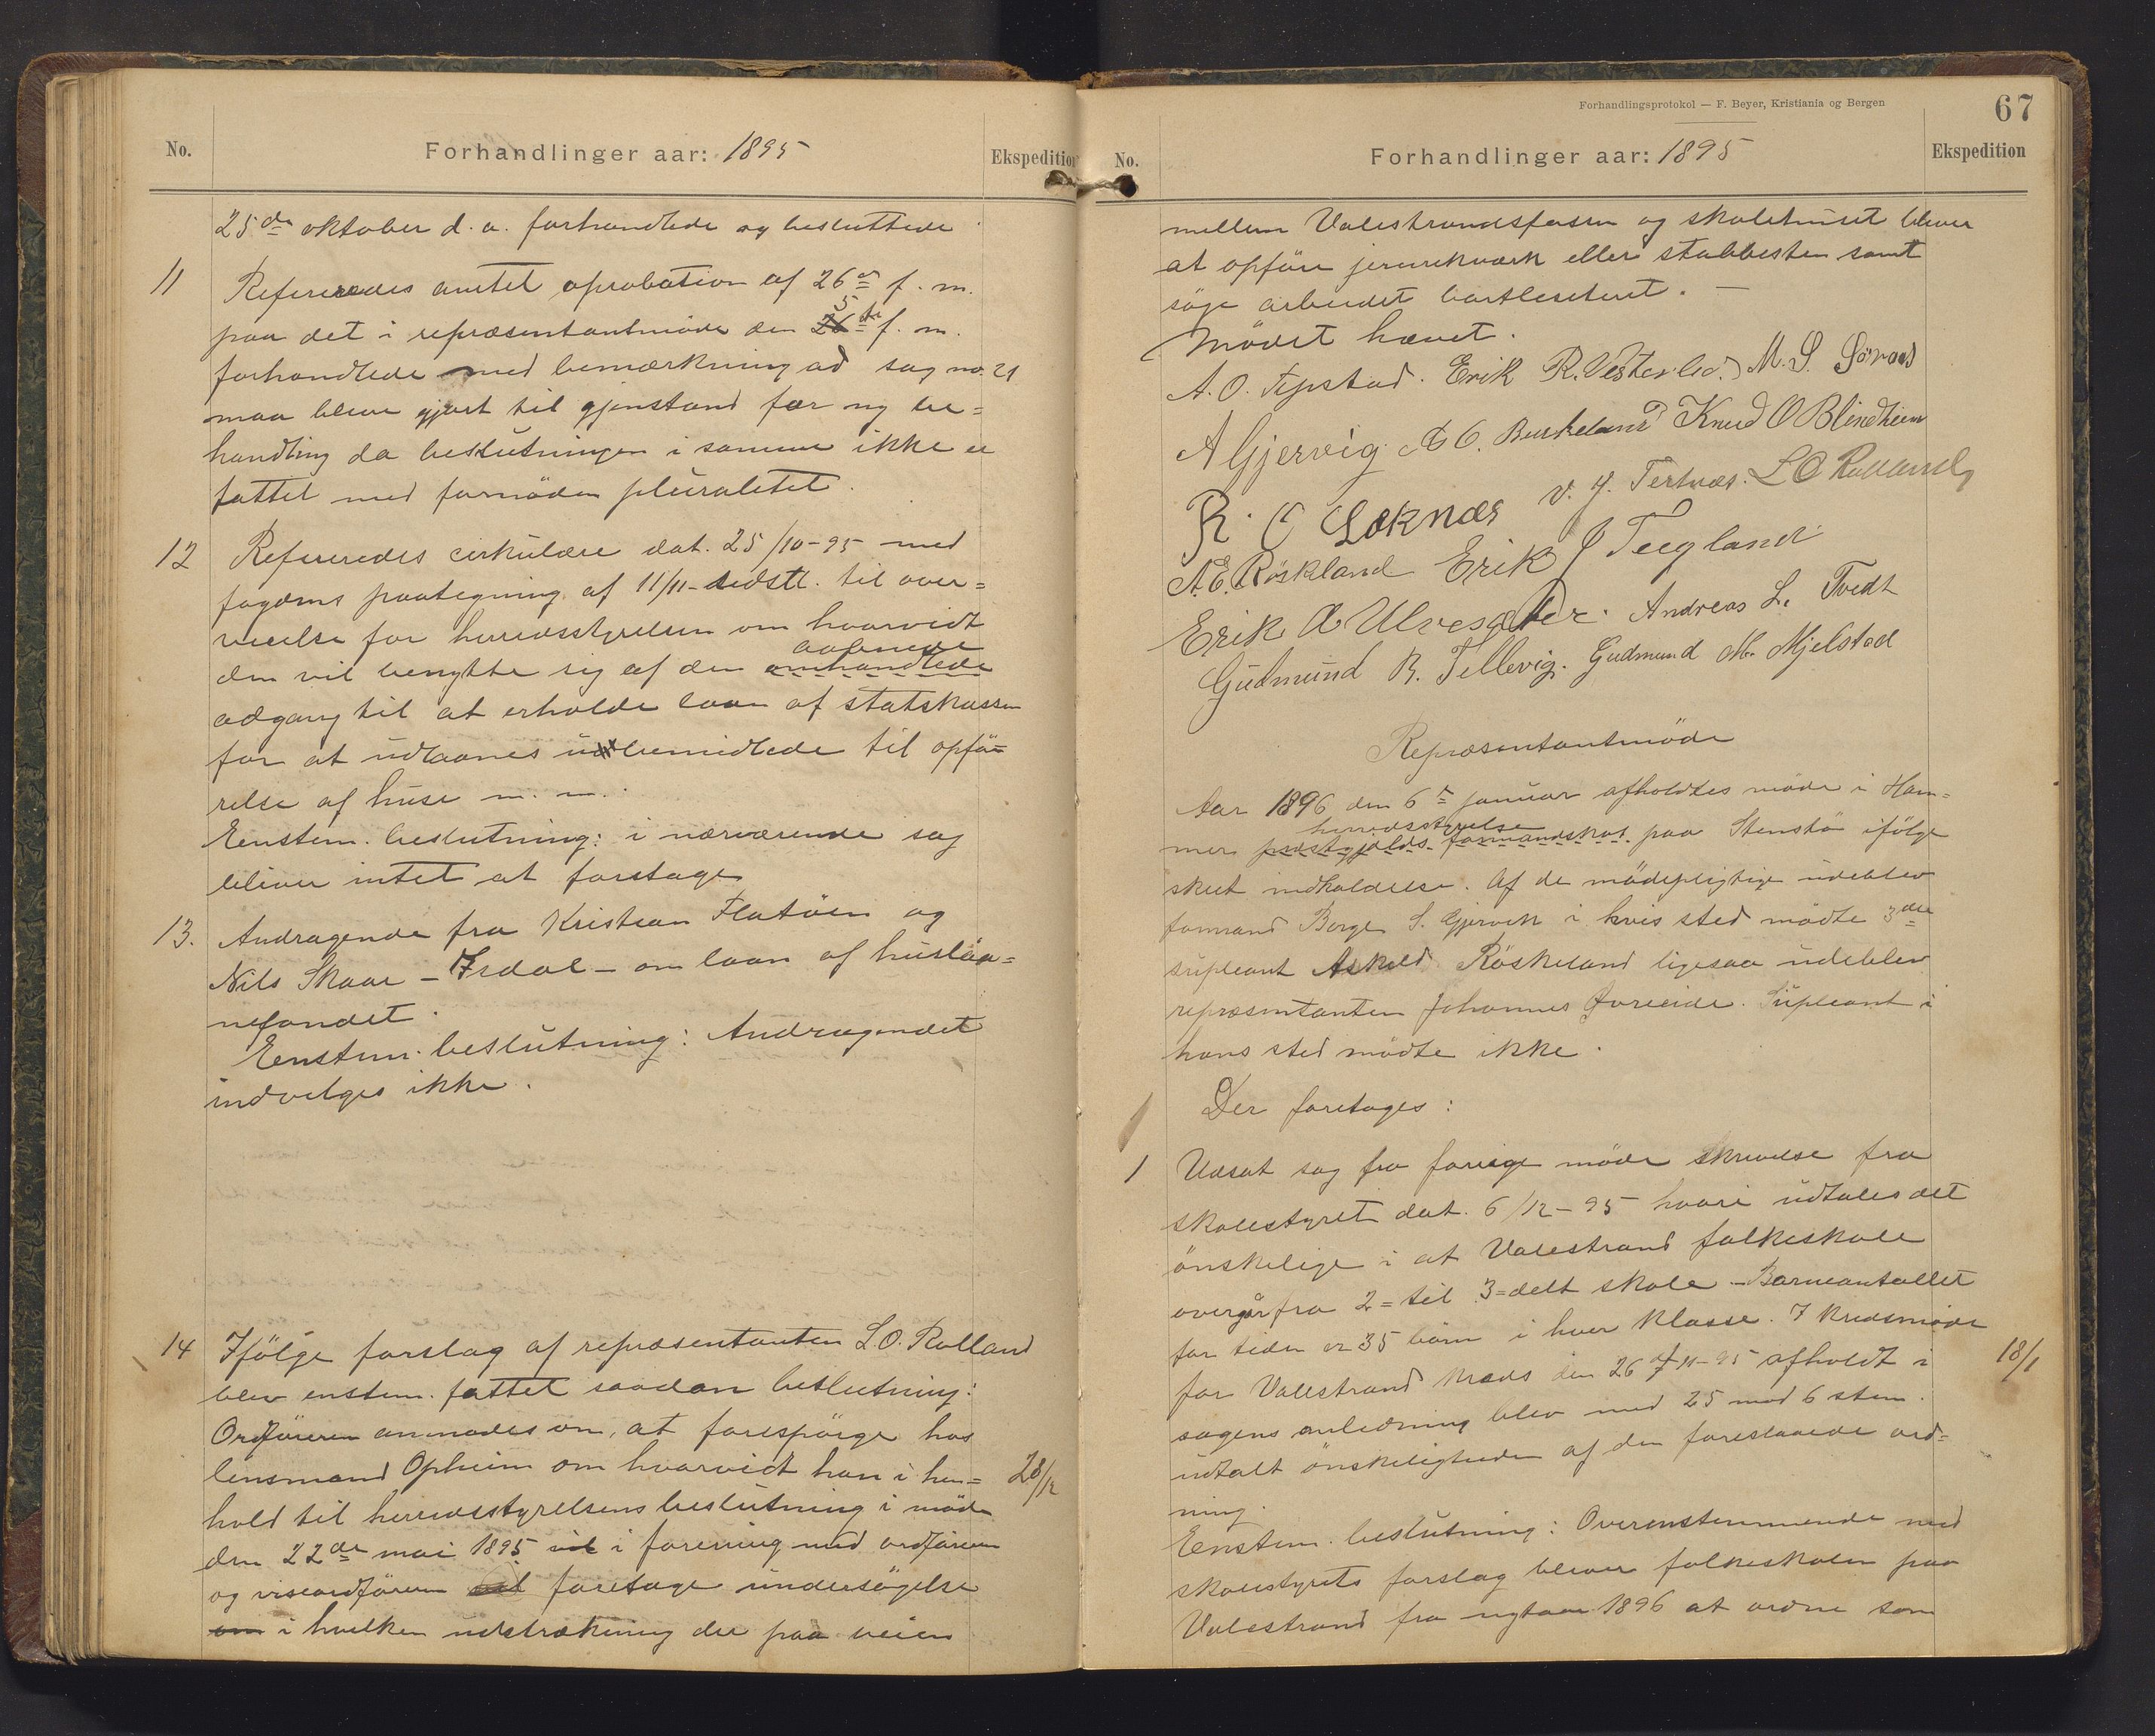 No.
Forhandlinger aar: 1895
Ekspedition
25de oktober d. a. forhandlede og besluttede
11 Refereredes amtet aprobation af 26de f. m.
paa det i repræsentantmøde den 25de f. m.
forhandlede med bemærkning ad sag no. 21
maa blive gjort til gjenstand for ny be=
handling da beslutningen i samme ikke er
fattet med fornöden pluralitet.
12 Refereredes cirkulære dat. 25/10-95 med
fogdens paategning af 11/11- sidstl. til over=
veielse for herredsstyrelsen om hvorvidt
aabnede
den vil benytte sig af den omhandlede
adgang til at erholde laan af statskassen
for at udlaanes ubemidlede til opfö=
relse af huse m. m.
Eenstem. beslutning: i nærværende sag
bliver intet at foretage
13. Andragende fra Kristian Flatöen og
Nils Skaar - Isdal - om laan af huslåa=
nefondet.
Eenstem. beslutning: Andragendet
indvilges ikke.
14 Ifölge forslag af repræsentanten L.O. Rolland
blev enstem. fattet saadan beslutning:
Ordföreren anmodes om, at forespörge hos
lensmand Opheim om hvorvidt han i hen=
28/12
hold til herredsstyrelsens beslutning i møde
den 22de mai 1895 vil i forening med ordføreren
og viseordföreren vil foretage undersögelse
om i hvilken udstrækning der paa veien
Forhandlingsprotokol — F. Beyer, Kristiania og Bergen
67
No.
Forhandlinger aar: 1895
Ekspedition
mellem Valestrandsfossen og skolehuset bliver
at opføre jernrekværk eller stabbesten samt
söge arbeidet bortlisiteret. —
Mödet hævet.
A. O. Tepstad. Erik R. Vesterlid. M. S. Söraas
A Gjervig A O. Burkeland Knud O Blindheim
R. O Loknæs V. J. Tertnæs. L O Rolland
A. E. Röskland Erik J Teegland
Erik A Ulvesæter. Andreas L. Tvedt
Gudmund R. Tellevig. Gudmund M. Mjelstad
Repræsentantmöde
Aar 1896 den 6te januar afholdtes möde i Ham=
herredsstyrelse
mer præstegjelds formandskab paa Stenstö ifölge
skeet indkaldelse. Af de mödepligtige udeblev
formand Borge S. Gjervik i hvis sted mödte 3die
supleant Askeld Röskeland ligesaa udeblev
repræsentanten Johannes Øvreeide. Supleant i
hans sted mödte ikke.
Der foretoges:
1 Udsat sag fra forrige möde skrivelse fra
skolestyret dat. 6/12-95 hvori udtales det
önskelige i at Valestrand folkeskole
overgår fra 2= til 3=delt skole - Barneantallet
for tiden er 35 börn i hver klasse. I kredsmöde
18/1
for Valestrand kreds den 26/11-95 afholdt i
sagens anledning blev med 25 mod 6 stem.
udtalt önskeligheden af den foreslaaede ord=
ning.
Eenstem. beslutning: Overenstemmende med
skolestyrets forslag bliver folkeskolen paa
Valestrand fra nytaar 1896 at ordne som